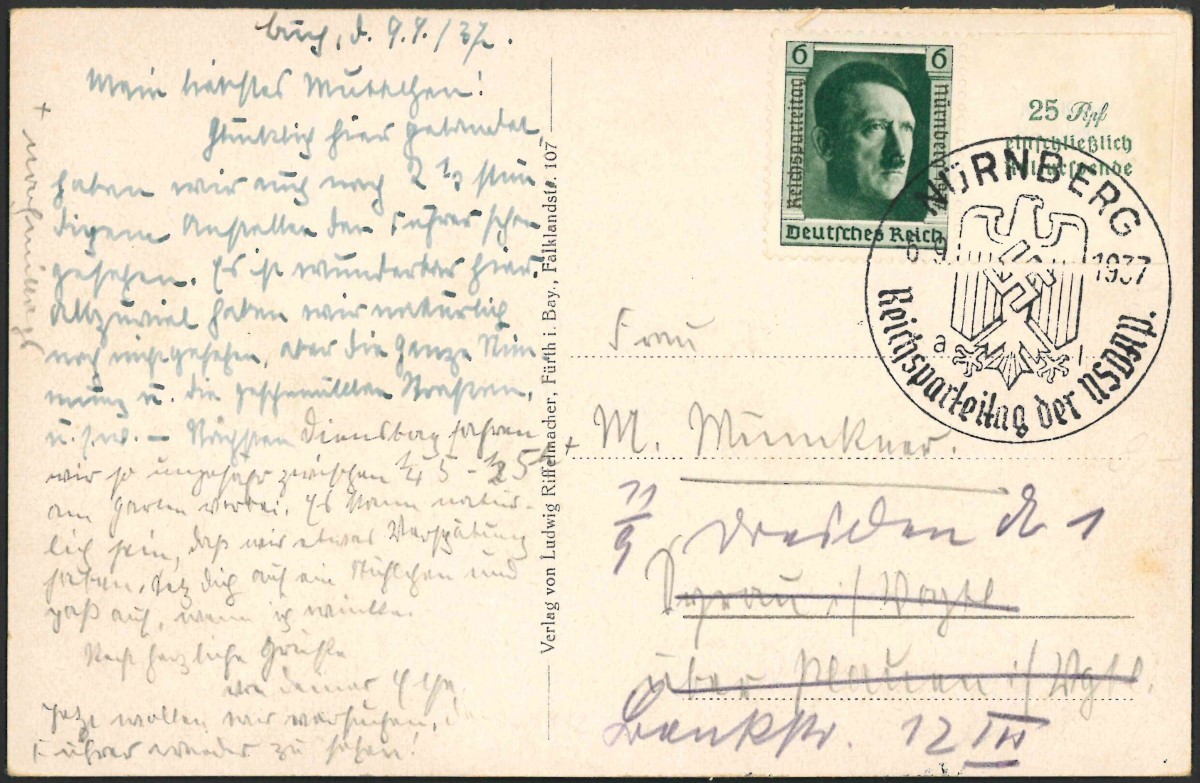 Buch, d. 9.9./37.
Mein liebstes Muttchen!
Glücklich hier gelandet
haben wir auch nach 2 1/2 stün
digem Anstellen den Führer schon
gesehen. Es ist wunderbar hier.
Allzuviel haben wir natürlich
noch nicht gesehen, aber die ganze Stim
mung u. die geschmückten Strassen,
u.s.w. — Nächsten Dienstag fahren +
wir so ungefähr zwischen 1/45 - 1/25
am Garten vorbei. Es kann natür-
lich sein, daß wir etwas Verspätung
haben. Setz dich auf ein Stühlchen und
paß auf, wenn ich winke.
Recht herzliche Grüße
von deiner
Jetzt wollen wir versuchen, den
Führer wieder zu sehen!
+ nachmittags
Verlag von Ludwig Riffelmacher, Fürth i. Bay., Falklandstr. 107
6 6
Reichsparteitag
Nürnberg
Deutsches Reich
25 Rpf
einschließlich
Kulturspende
NÜRNBERG
9 1937
a
Reichsparteitag der NSDAP.
Frau
M. Munkner.
11/9 Dresden A 1
Syrau i/Vogtl
über Plauen i/Vgtl.
Bankstr. 12 III